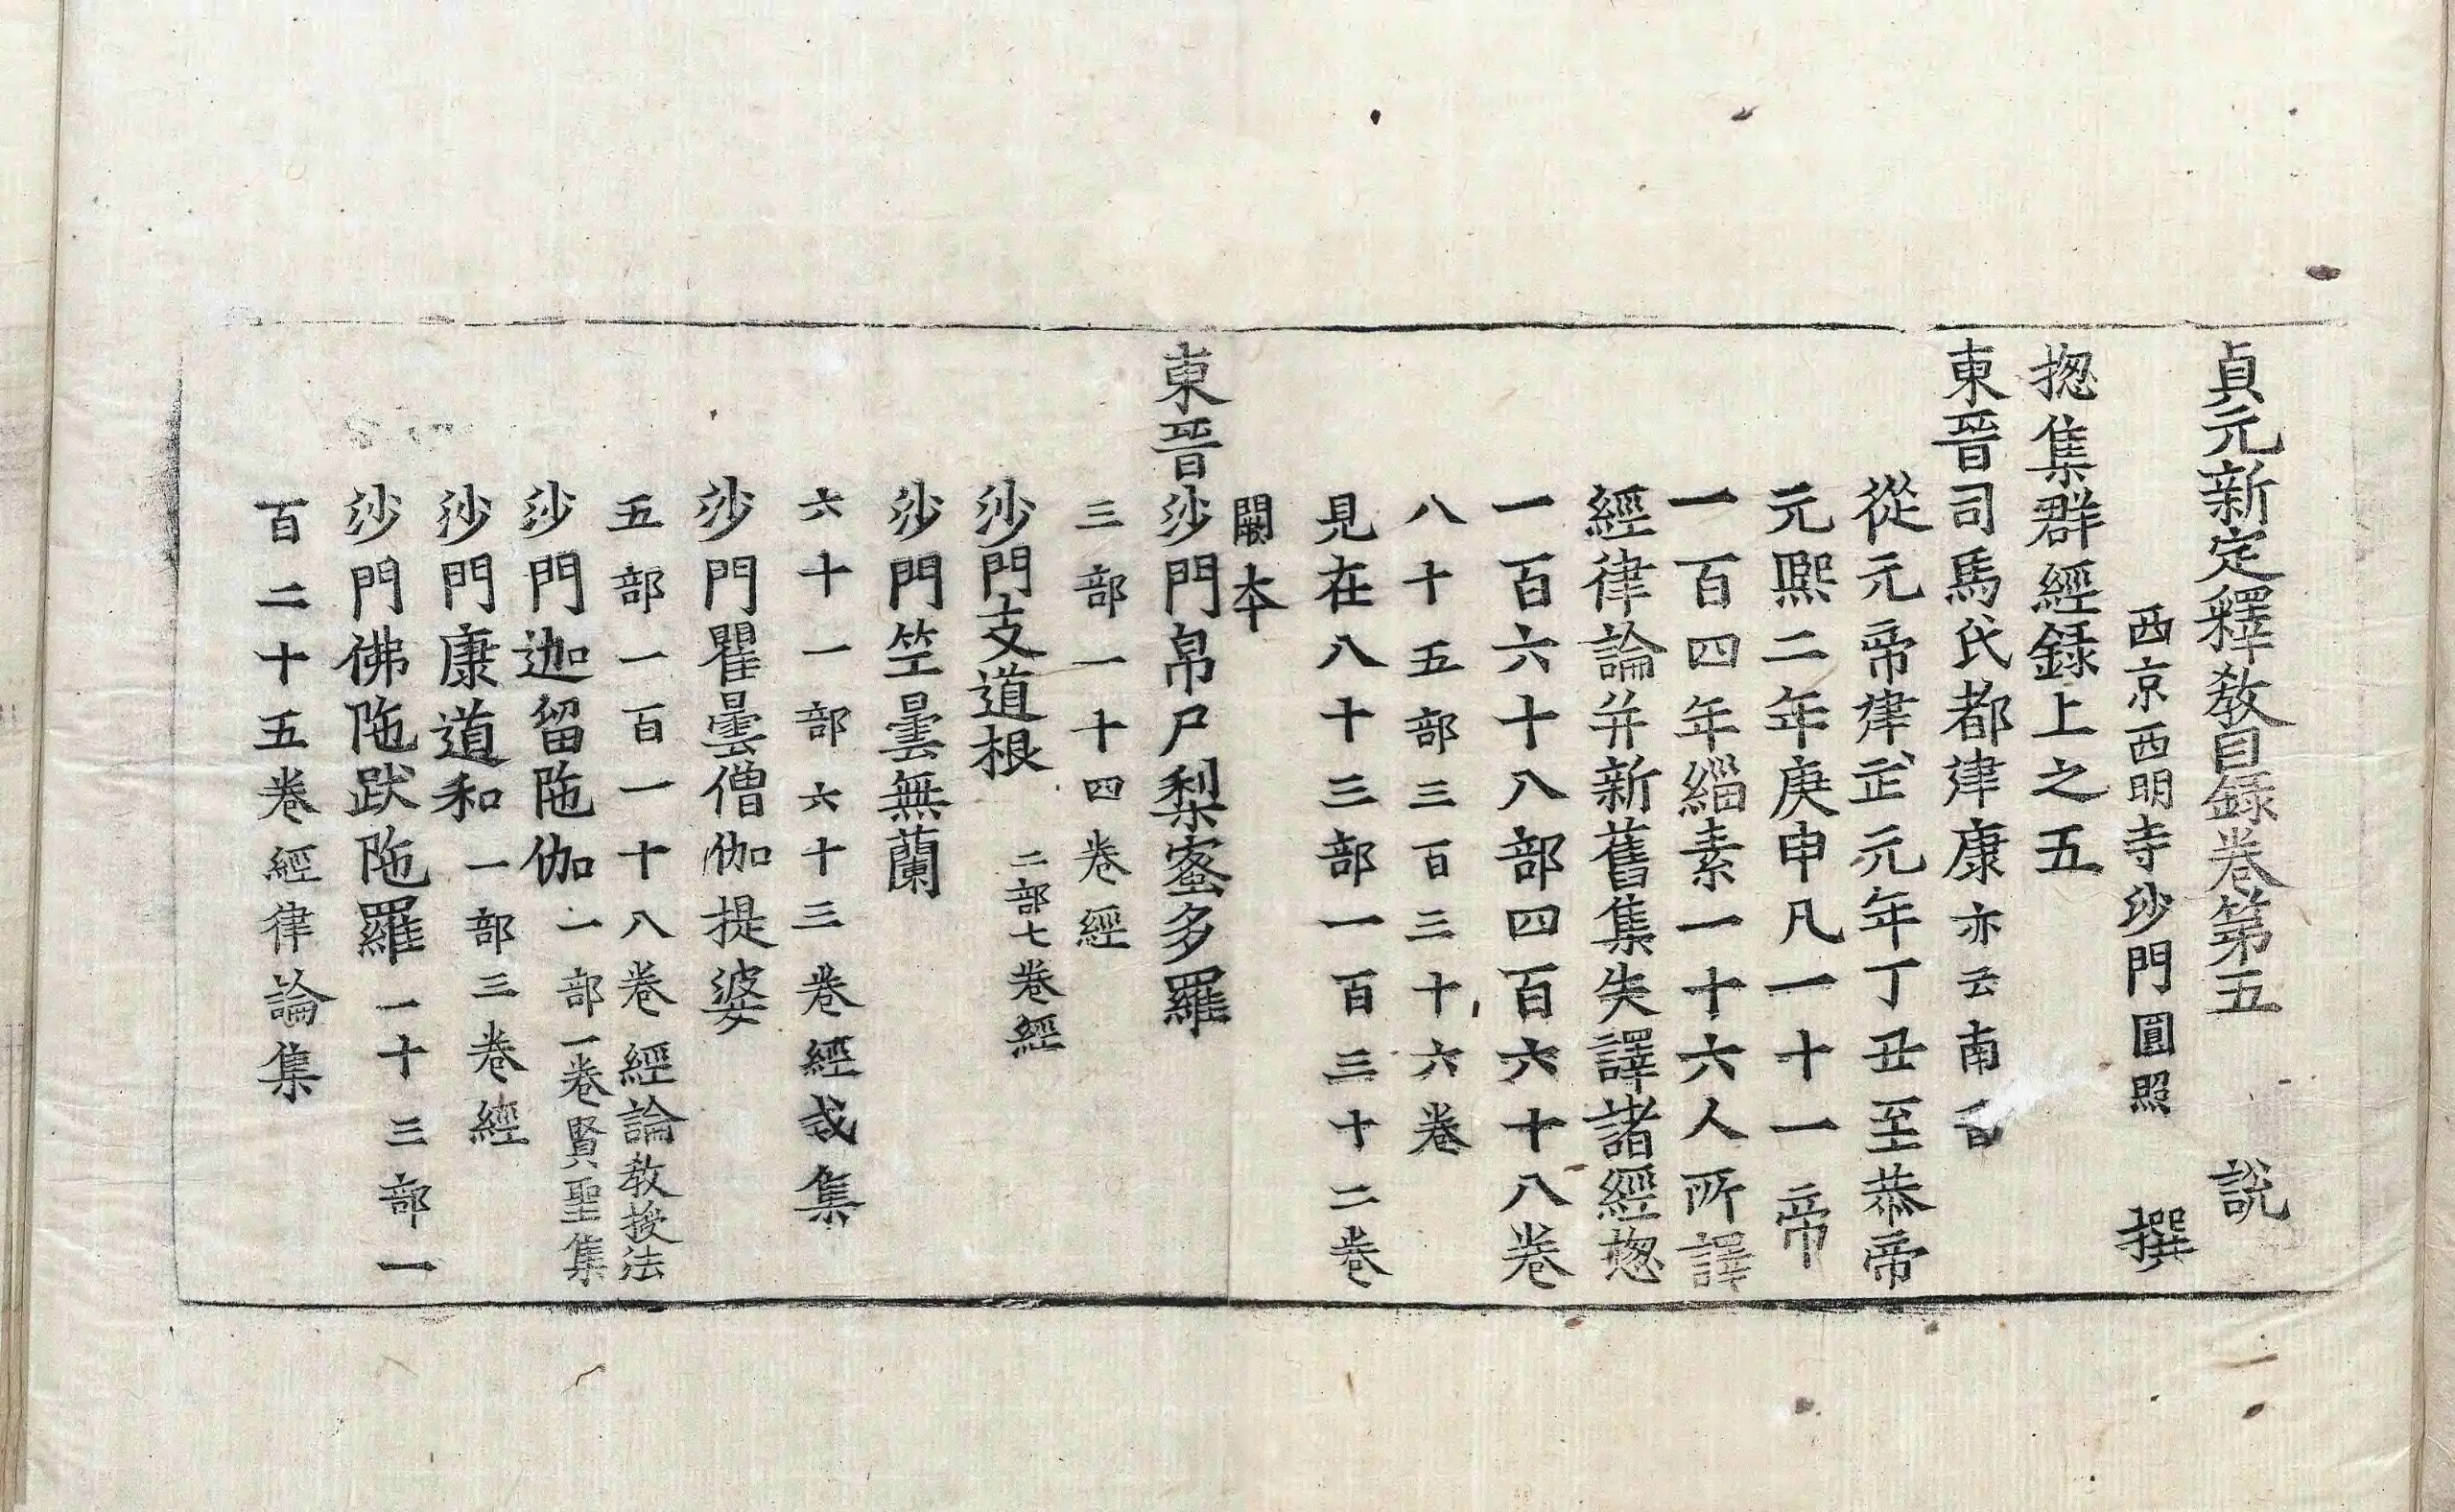 貞元新定釋教目録卷第五　說
西京西明寺沙門圓照　撰
揔集群經録上之五
東晉司馬氏都建康亦云南晉
從元帝建武元年丁丑至恭帝
元熙二年庚申凡一十一帝
一百四年緇素一十六人所譯
經律論并新舊集失譯諸經揔
一百六十八部四百六十八卷
八十五部三百三十六卷
見在八十三部一百三十二卷
闕本
東晉沙門帛尸梨蜜多羅
三部一十四卷經
沙門支道根　二部七卷經
沙門竺曇無蘭
六十一部六十三卷經戒集
沙門瞿曇僧伽提婆
五部一百一十八卷經論教授法
沙門迦留陁伽　一部一卷賢聖集
沙門康道和　一部三卷經
沙門佛陁跋陁羅　一十三部一
百二十五卷經律論集